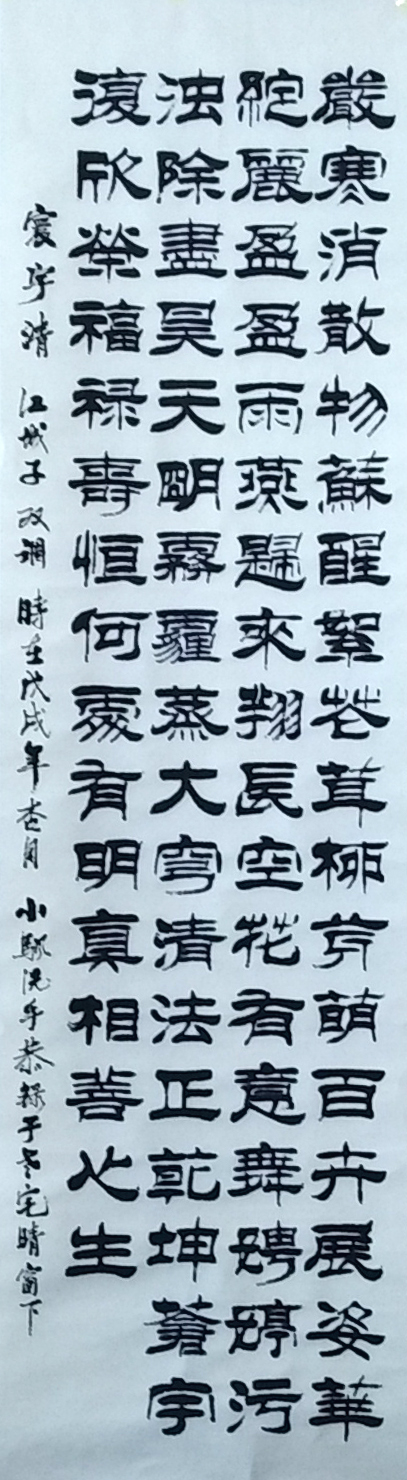 嚴寒消散物蘇醒絮花茸柳芽萌百卉展姿華
綻麗盈盈雨燕歸來翔長空花有意舞娉婷污
浊除盡昊天朙霧霾蒸大穹清法正乾坤蒼宇
復欣榮福禄壽恒何處有明真相善心生
寰宇清 江城子 双調 時在戊戌年杏月 小洗手恭録于老宅晴窗下